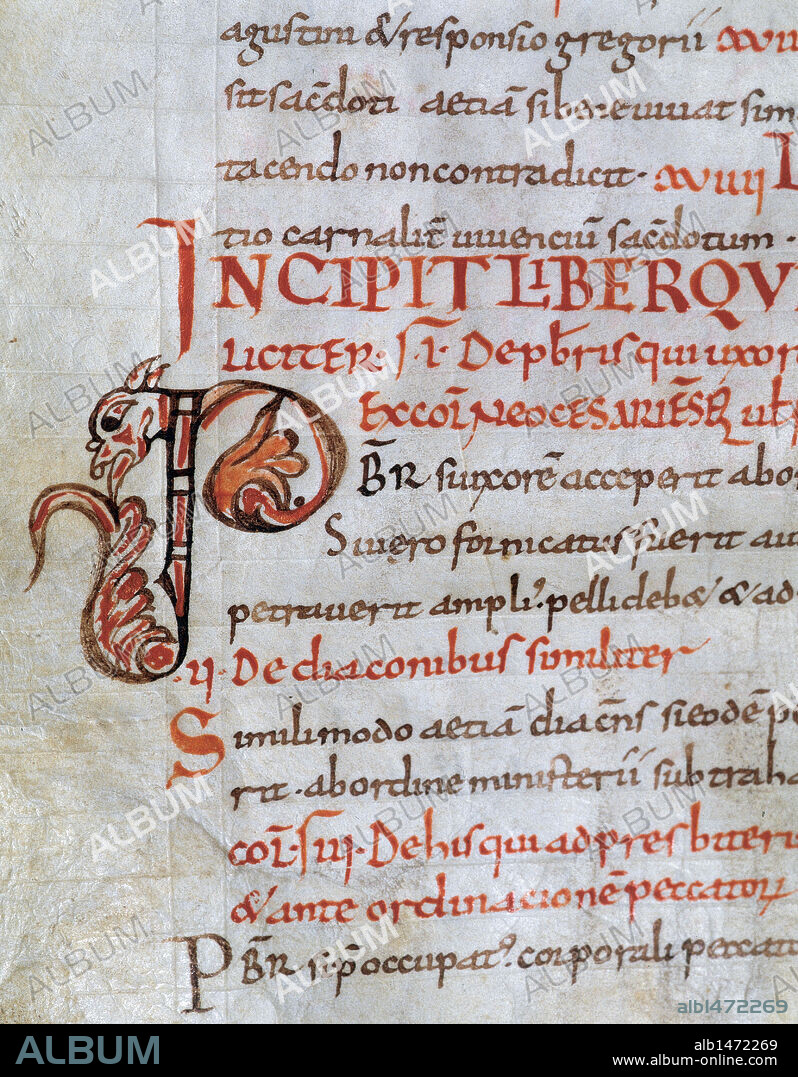 agustini & responsio gregorii xvii
sit sacdoti aetiā si bene vivat simi
tacendo non contradicit · xviiii
tio carnalit̄ vivenciū sacdotum ·
INCIPIT LIBER QV
LICITER · S̄ · I · De pb̄ris qui uxor
EX COR̄ NEOCESARIĒSE
PB̄R si uxorē acceperit abor
Si vero fornicatus fuerit au
petraverit ampli' pelli deb& & ad
· ii · De diaconibus similiter
Simili modo aetiā diac̄ns si eodē
rit · ab ordine ministerii subtraha
cor̄ · S · iii · De his qui ad presbiteri
& ante ordinacionē peccator
PB̄R si p̄occupat' corporali peccat
ALBUM
alb1472269
ALBUM
alb1472269
www.album-online.com